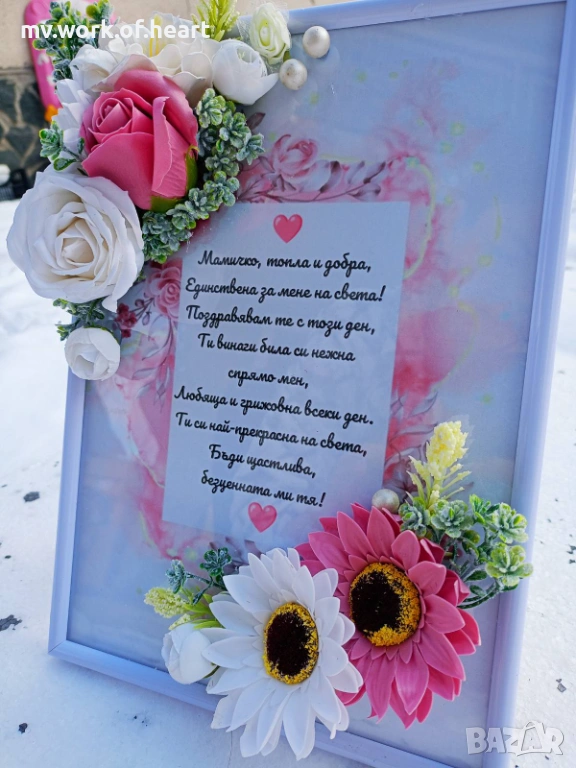 mv.work.of.heart
Мамичко, топла и добра,
Единствена за мене на света!
Поздравявам те с този ден,
Ти винаги била си нежна
спрямо мен,
Любяща и грижовна всеки ден.
Ти си най-прекрасна на света,
Бъди щастлива,
безценната ми тя!
BAZAR